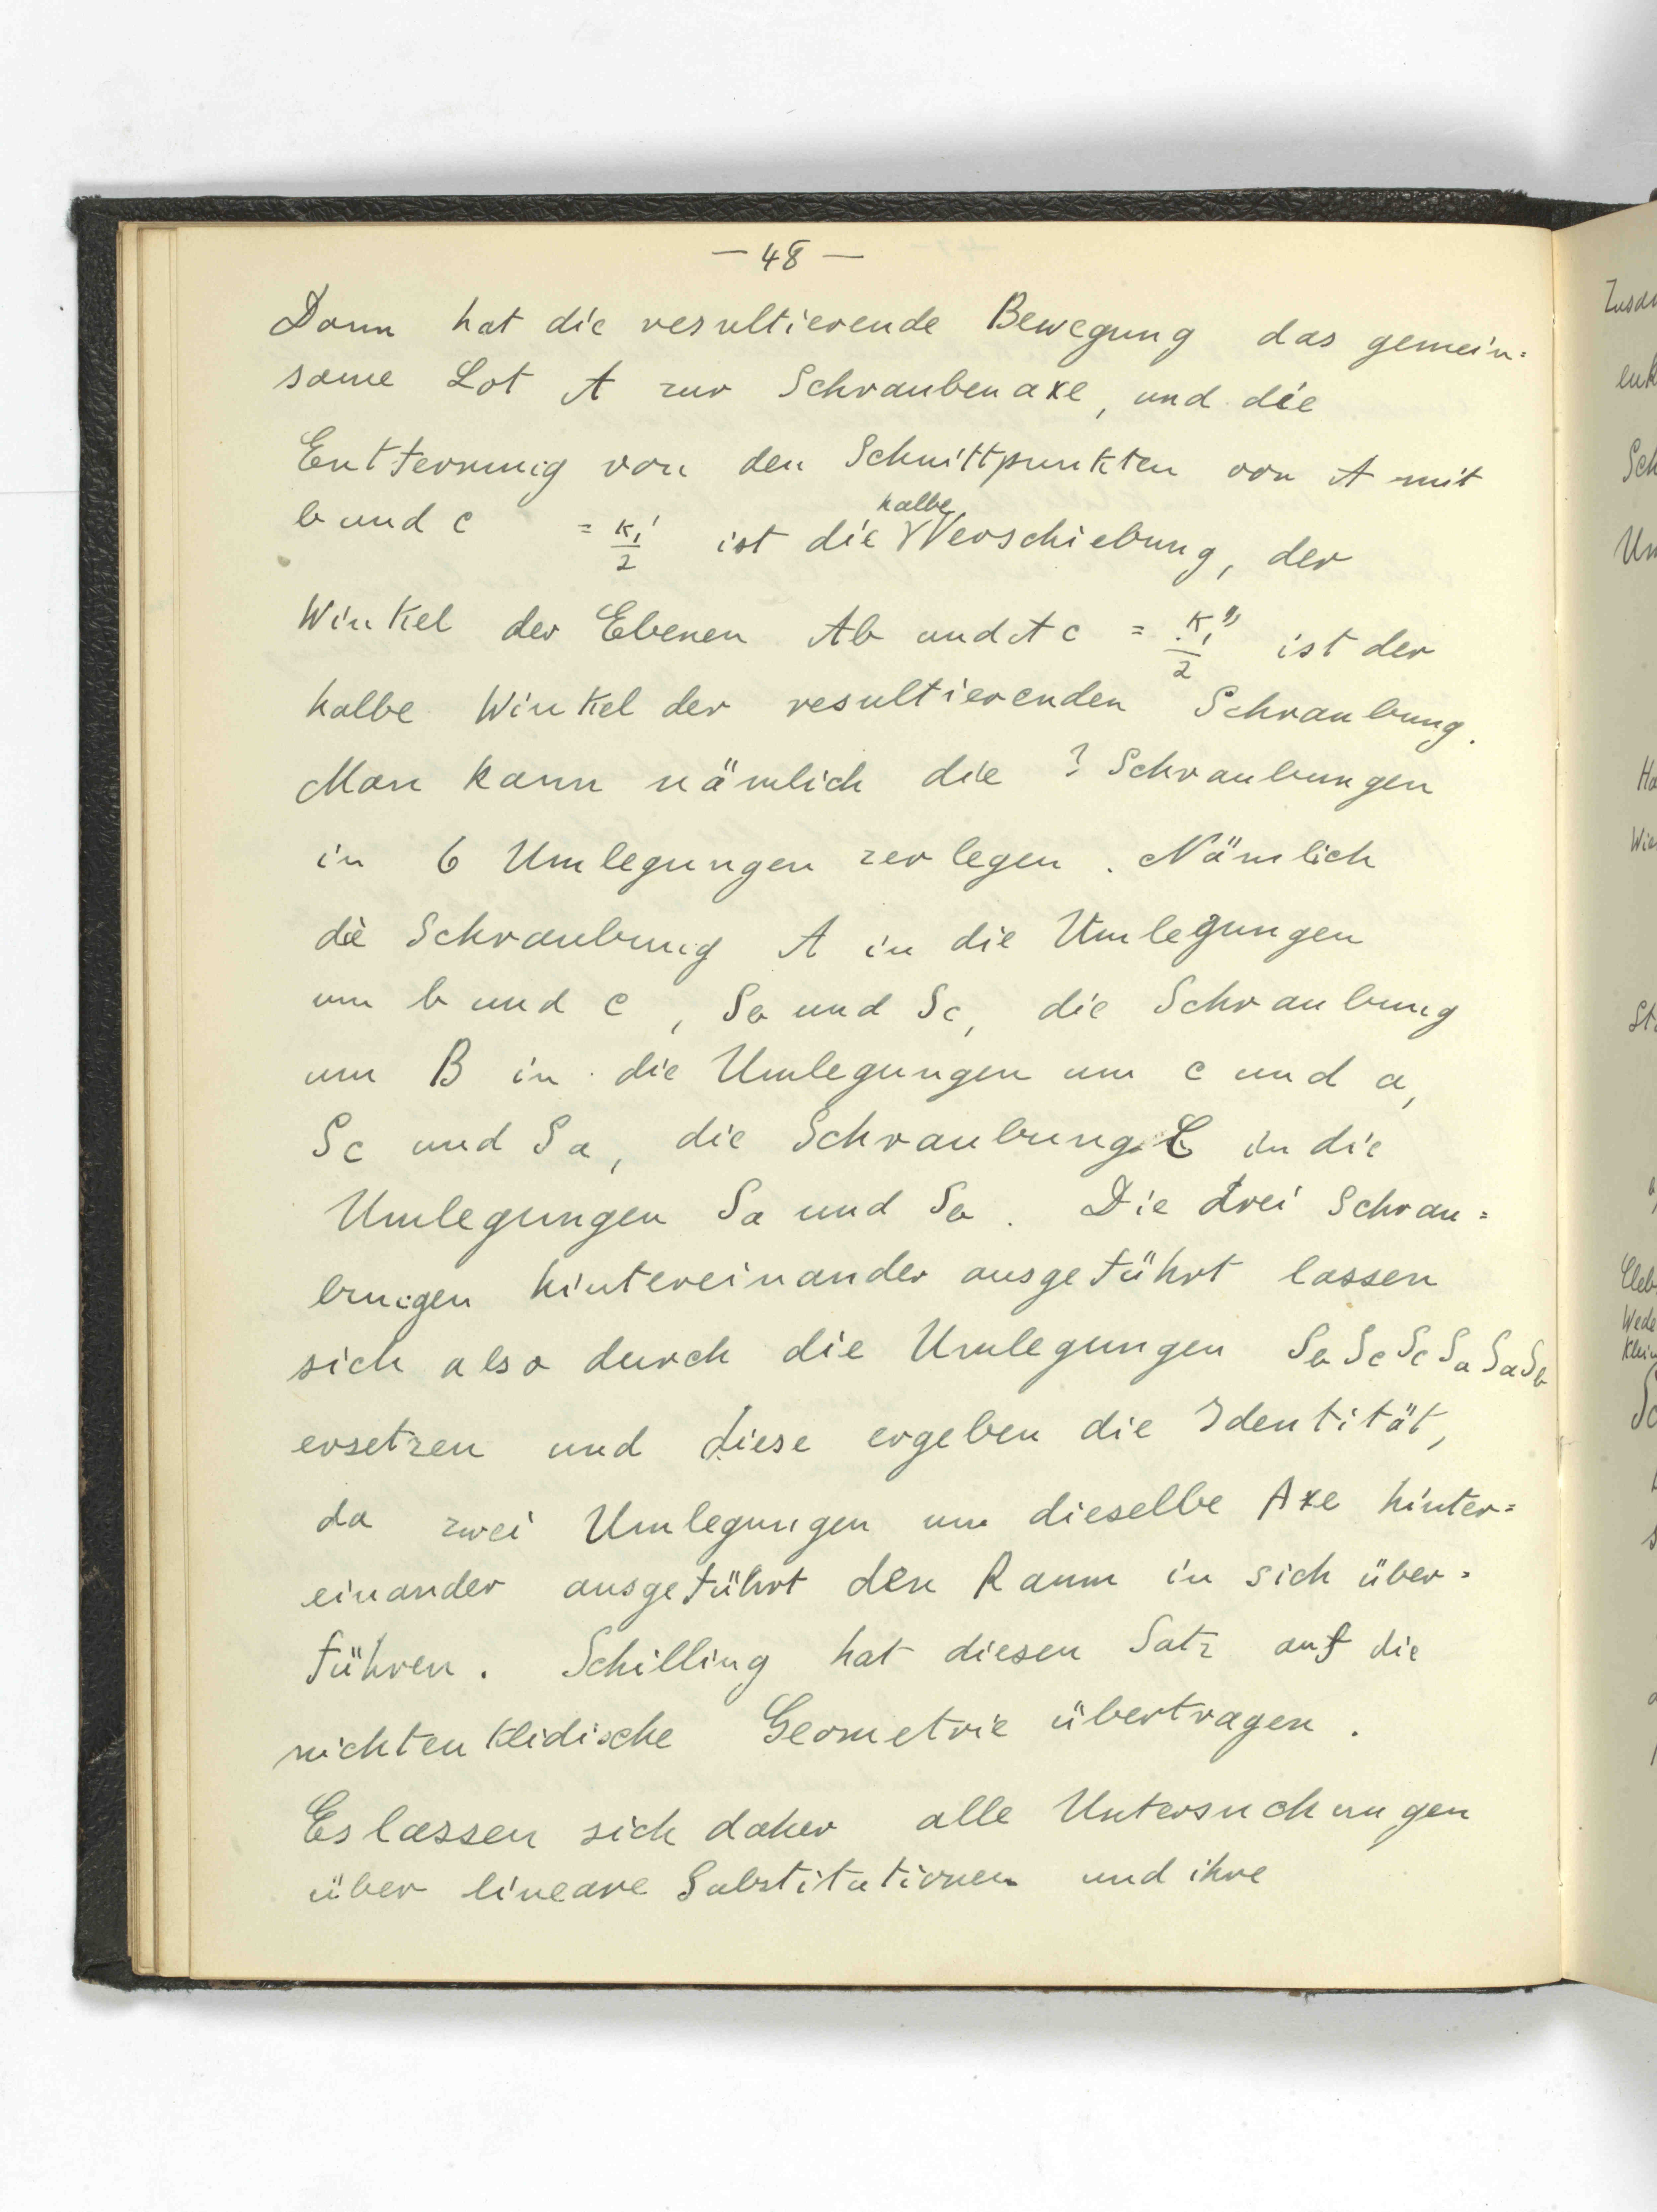 — 48 —
Dann hat die resultierende Bewegung das gemein=
same Lot A zur Schraubenaxe, und die
Entfernung von den Schnittpunkten von A mit
b und c = κ₁'/2 ist die halbe Verschiebung, der
Winkel der Ebenen Ab und Ac = κ₁''/2 ist der
halbe Winkel der resultierenden Schraubung.
Man kann nämlich die 3 Schraubungen
in 6 Umlegungen zerlegen. Nämlich
die Schraubung A in die Umlegungen
um b und c, Sb und Sc, die Schraubung
um B in die Umlegungen um c und a,
Sc und Sa, die Schraubung C in die
Umlegungen Sa und Sb. Die drei Schrau=
bungen hintereinander ausgeführt lassen
sich also durch die Umlegungen Sb Sc Sc Sa Sa Sb
ersetzen und diese ergeben die Identität,
da zwei Umlegungen um dieselbe Axe hinter=
einander ausgeführt den Raum in sich über=
führen. Schilling hat diesen Satz auf die
nichteuklidische Geometrie übertragen.
Es lassen sich daher alle Untersuchungen
über lineare Substitutionen und ihre